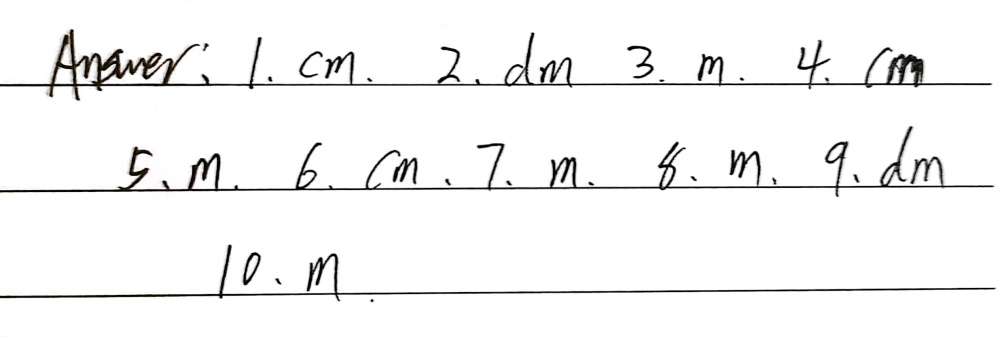 Answer: 1. cm. 2. dm 3. m. 4. cm
5. m. 6. cm. 7. m. 8. m. 9. dm
10. m.